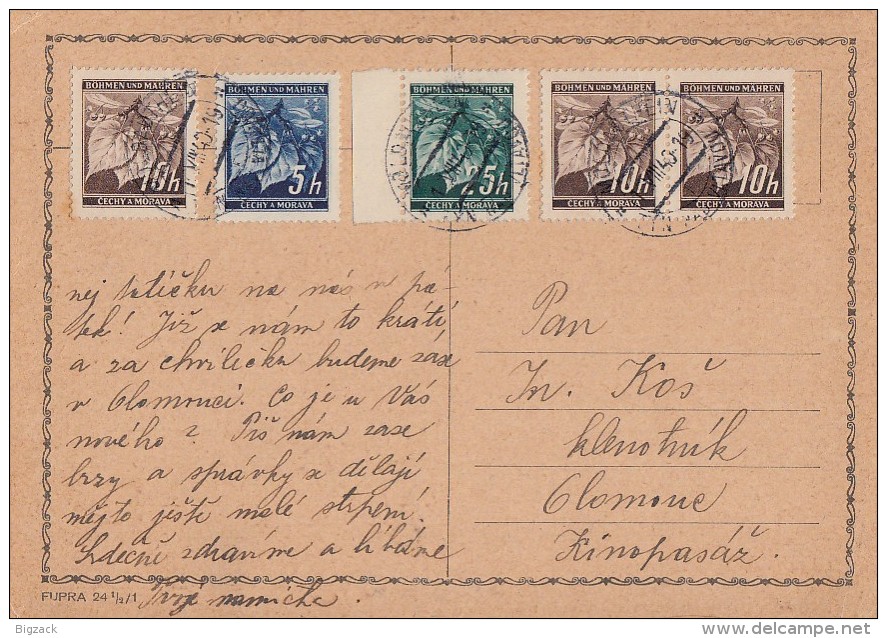 BÖHMEN UND MÄHREN
10h
ČECHY A MORAVA
BÖHMEN UND MÄHREN
5h
ČECHY A MORAVA
BÖHMEN UND MÄHREN
25h
ČECHY A MORAVA
BÖHMEN UND MÄHREN
10h
ČECHY A MORAVA
BÖHMEN UND MÄHREN
10h
ČECHY A MORAVA
nej tatíčku na nás v pá-
tek! Již se nám to krátí
a za chviličku budeme zase
v Olomouci. Co je u Vás
nového? Piš nám zase
brzy a správky se dělají
mějto ještě malé strpení.
Srdečně zdravíme a líbáme
Tvoje mamicka.
Pan
Jn. Koš
klenotník
Olomouc
Kinopasáž.
FUPRA 24 1/2/1
Bigzack
delcampe.net